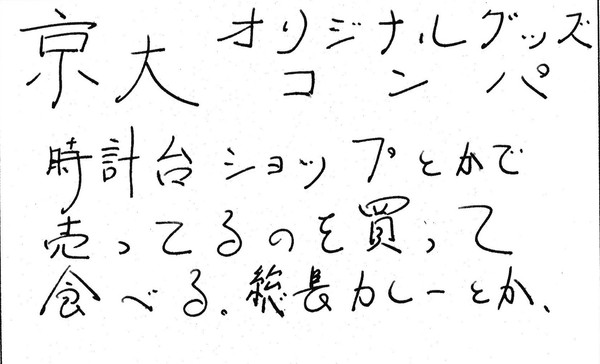 京大 オリジナルグッズ
コンパ
時計台ショップとかで
売ってるのを買って
食べる。総長カレーとか、